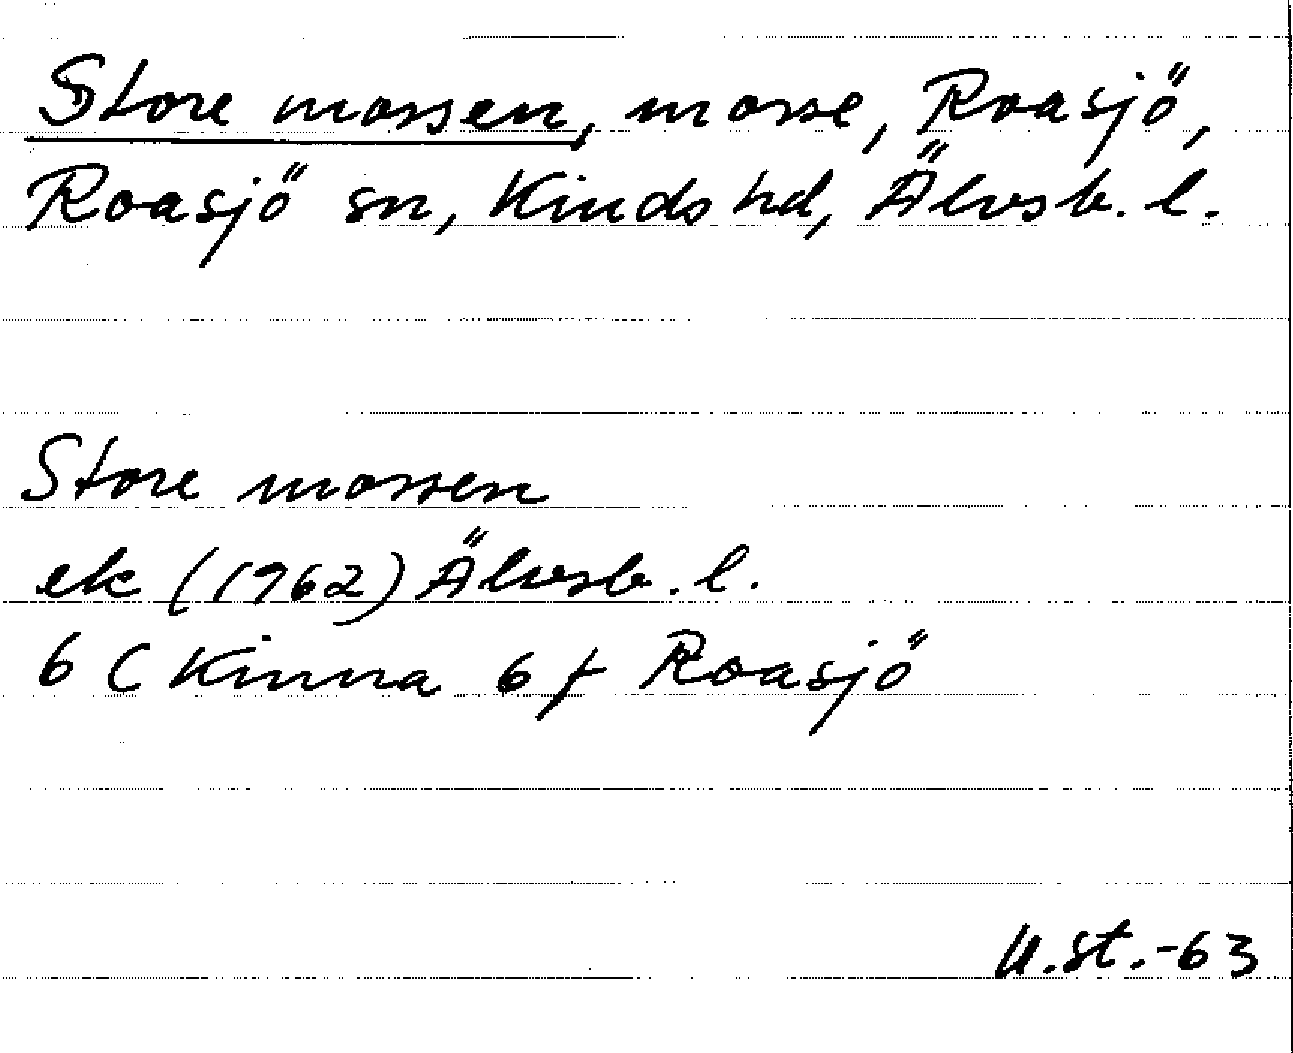 Store mossen, mosse, Roasjö,
Roasjö sn, Kinds hd, Älvsb. l.
Store mossen
ek (1962) Älvsb. l.
6 C Kinna 6 f Roasjö
U.st.-63